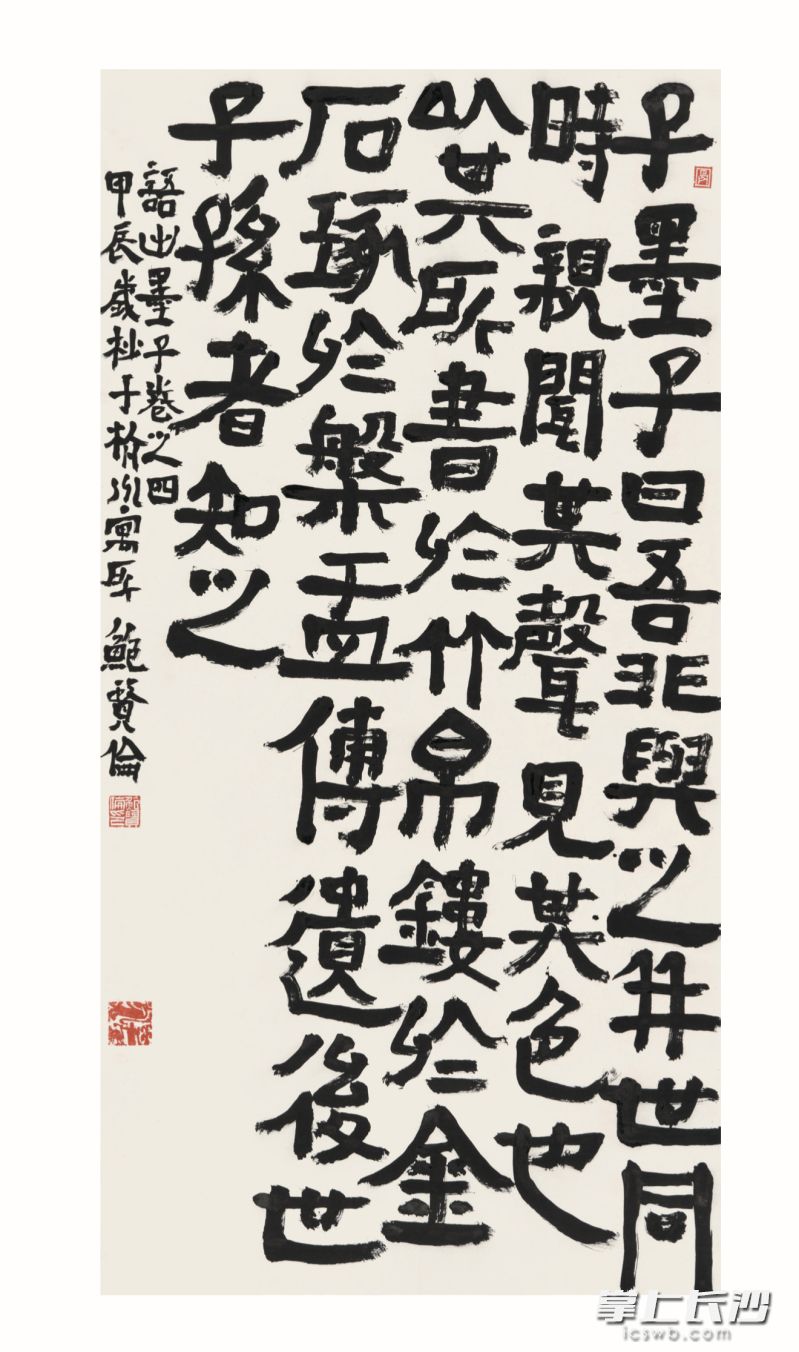 子墨子曰吾非與之并世同
時親聞其聲見其色也
以其所書於竹帛鏤於金
石琢於槃盂傳遺後世
子孫者知之
語出墨子卷之四
甲辰歲杪于
寫耳鮑賢倫
掌上长沙
icswb.com